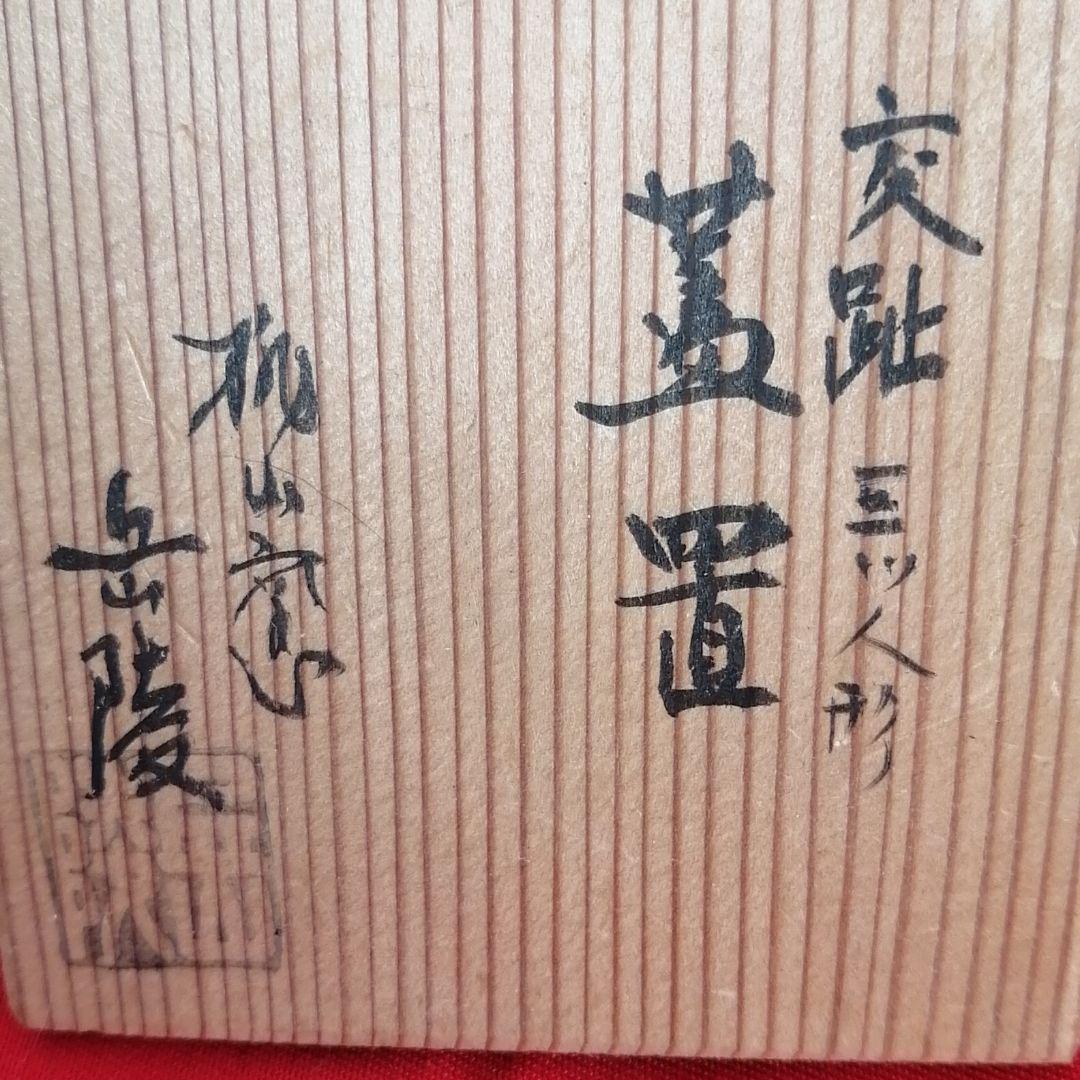 交趾 三ツ人形
蓋置
桃山窯
岳陵